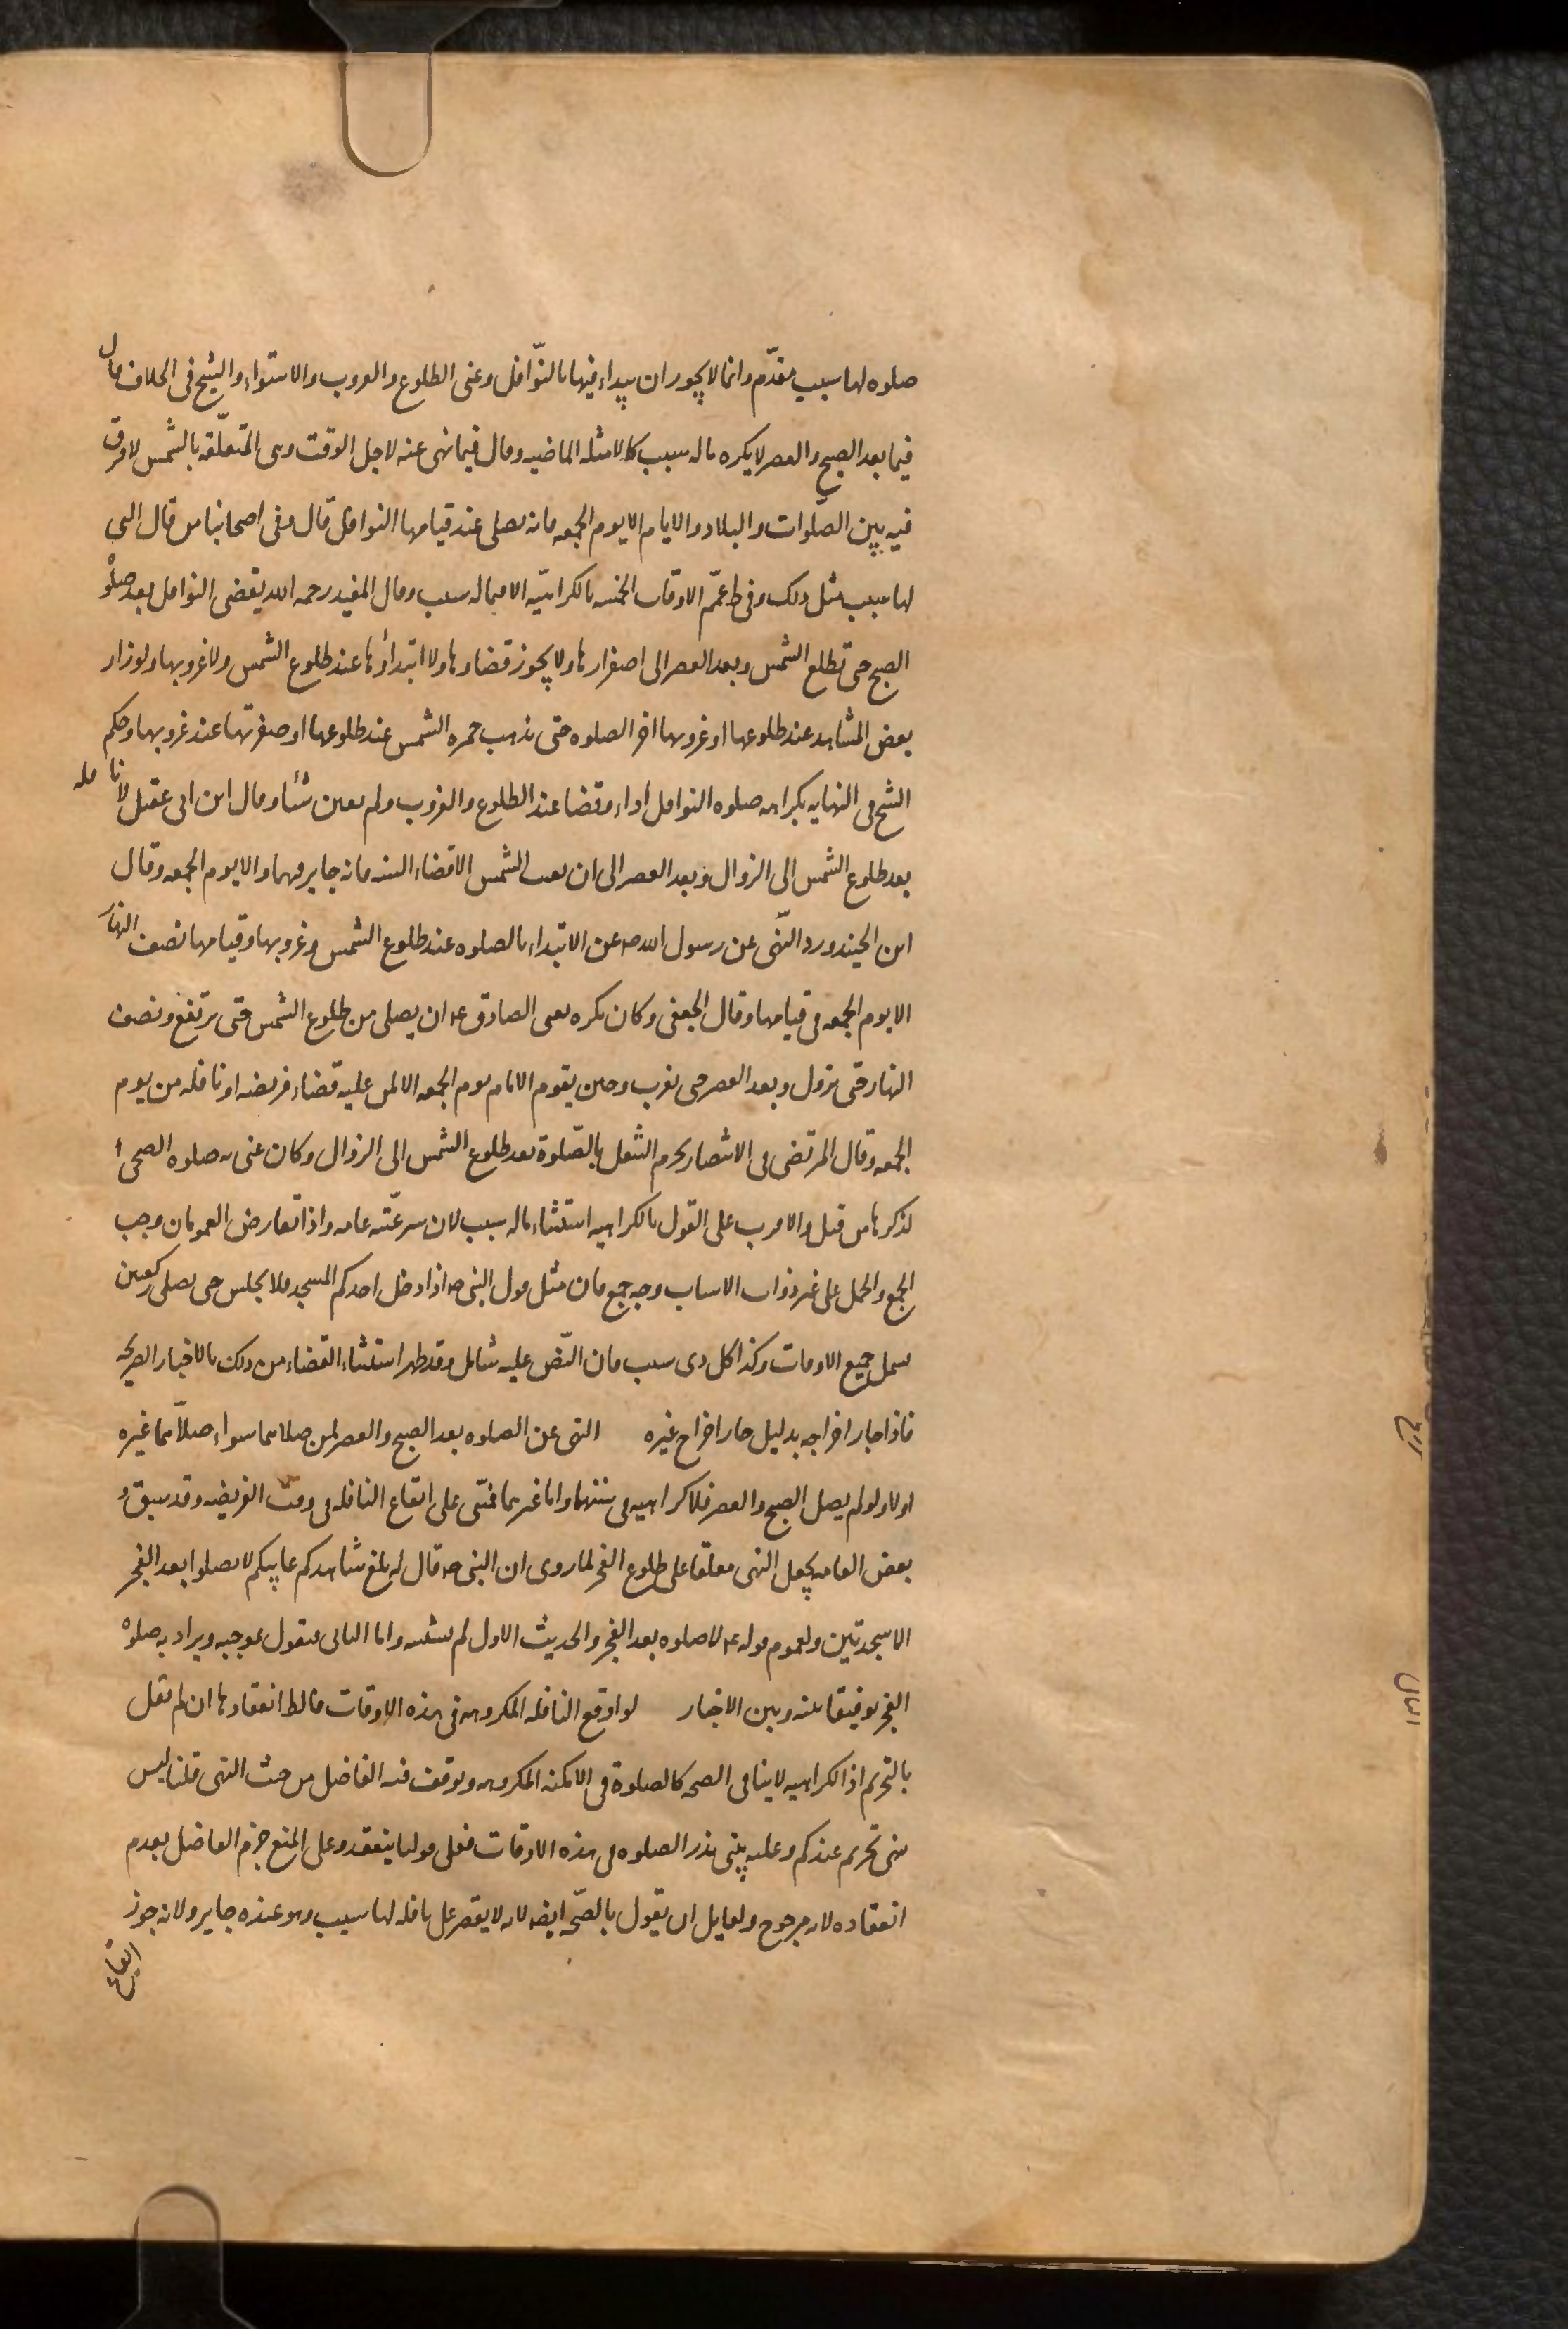 صلوه لها سبب مقدّم وانما لا يجوز ان يبداء فيها بالنّوافل وعنى الطلوع والغروب والاستواء والشيخ فى الخلاف قال
فيما بعد الصبح والعصر لا يكره ماله سبب كالامثله الماضيه وقال فيما نهى عنه لاجل الوقت وهى المتعلّقه بالشمس لا فرق
فيه بين الصّلوات والبلاد والايام الا يوم الجمعه فانه يصلى عند قيامها النوافل قال وفى اصحابنا من قال التى
لها سبب مثل ذلك وفى ط عمّم الاوقات الخمسه بالكراهيّه الا فيما له سبب وقال المفيد رحمه الله يقضى النوافل بعد صلوه
الصبح حتى تطلع الشمس وبعد العصر الى اصفرارها ولا يجوز قضاوها ولا ابتداؤها عند طلوع الشمس ولا غروبها ولو زار
بعض المشاهد عند طلوعها او غروبها اخر الصلوه حتى تذهب حمره الشمس عند طلوعها او صفرتها عند غروبها وحكم
الشيخ فى النهايه بكراهه صلوه النوافل اداء وقضا عند الطلوع والغروب ولم يعين شئا وقال ابن ابى عقيل لا نافله
بعد طلوع الشمس الى الزوال وبعد العصر الى ان تغيب الشمس الا قضاء السنه فانه جايز فيهما والا يوم الجمعه وقال
ابن الجنيد ورد النّهى عن رسول الله صه عن الابتداء بالصلوه عند طلوع الشمس وغروبها وقيامها نصف النهار
الا يوم الجمعه فى قيامها وقال الجعفى وكان يكره يعنى الصادق عه ان يصلى من طلوع الشمس حتى يرتفع ونصف
النهار حتى يزول وبعد العصر حتى تغرب وحين يقوم الامام يوم الجمعه الا لمن عليه قضاء فريضه او نافله من يوم
الجمعه وقال المرتضى فى الانتصار يحرم التنفل بالصّلوة بعد طلوع الشمس الى الزوال وكان عنى به صلوه الضحى
لذكرها من قبل والاقرب على القول بالكراهيه استثناء ماله سبب لان شرعيّته عامه واذا تعارض العمومان وجب
الجمع والحمل على غير ذوات الاسباب وجه جمع فان مثل قول النبى صه اذا دخل احدكم المسجد فلا يجلس حتى يصلى ركعتين
يشمل جميع الاوقات وكذا كل ذى سبب فان النّص عليه شامل وقد ظهر استثناء القضاء من ذلك بالاخبار الصريحه
فاذا جاز اخراجه بدليل جاز اخراج غيره النهى عن الصلوه بعد الصبح والعصر لمن صلاهما سواء صلّاهما غيره
اولا ولو لم يصل الصبح والعصر فلا كراهيه فى سننهما واما غيرهما فمبنى على ايقاع النافله فى وقت الفريضه وقد سبق و
بعض العامه يجعل النهى معلقا على طلوع الفجر لما روى ان النبى صه قال ليبلغ شاهدكم غايبكم لا تصلوا بعد الفجر
الا سجدتين ولعموم قوله عه لا صلوه بعد الفجر والحديث الاول لم نستثبته واما الثانى فنقول بموجبه ويراد به صلوه
الفجر توفيقا بينه وبين الاخبار لو اوقع النافله المكروهه فى هذه الاوقات فالظ انعقادها ان لم نقل
بالتحريم اذ الكراهيه لا ينافى الصحه كالصلوة فى الامكنه المكروهه وتوقف فيه الفاضل من حيث النهى قلنا ليس
نهى تحريم عندكم وعليه يبنى نذر الصلوه فى هذه الاوقات فعلى قولنا ينعقد وعلى المنع جزم الفاضل بعدم
انعقاده لانه مرجوح ولقايل ان يقول بالصّحه ايضه لانه لا يقصر عن نافله لها سبب وهو عنده جايز ولانه جوز
ايقاع